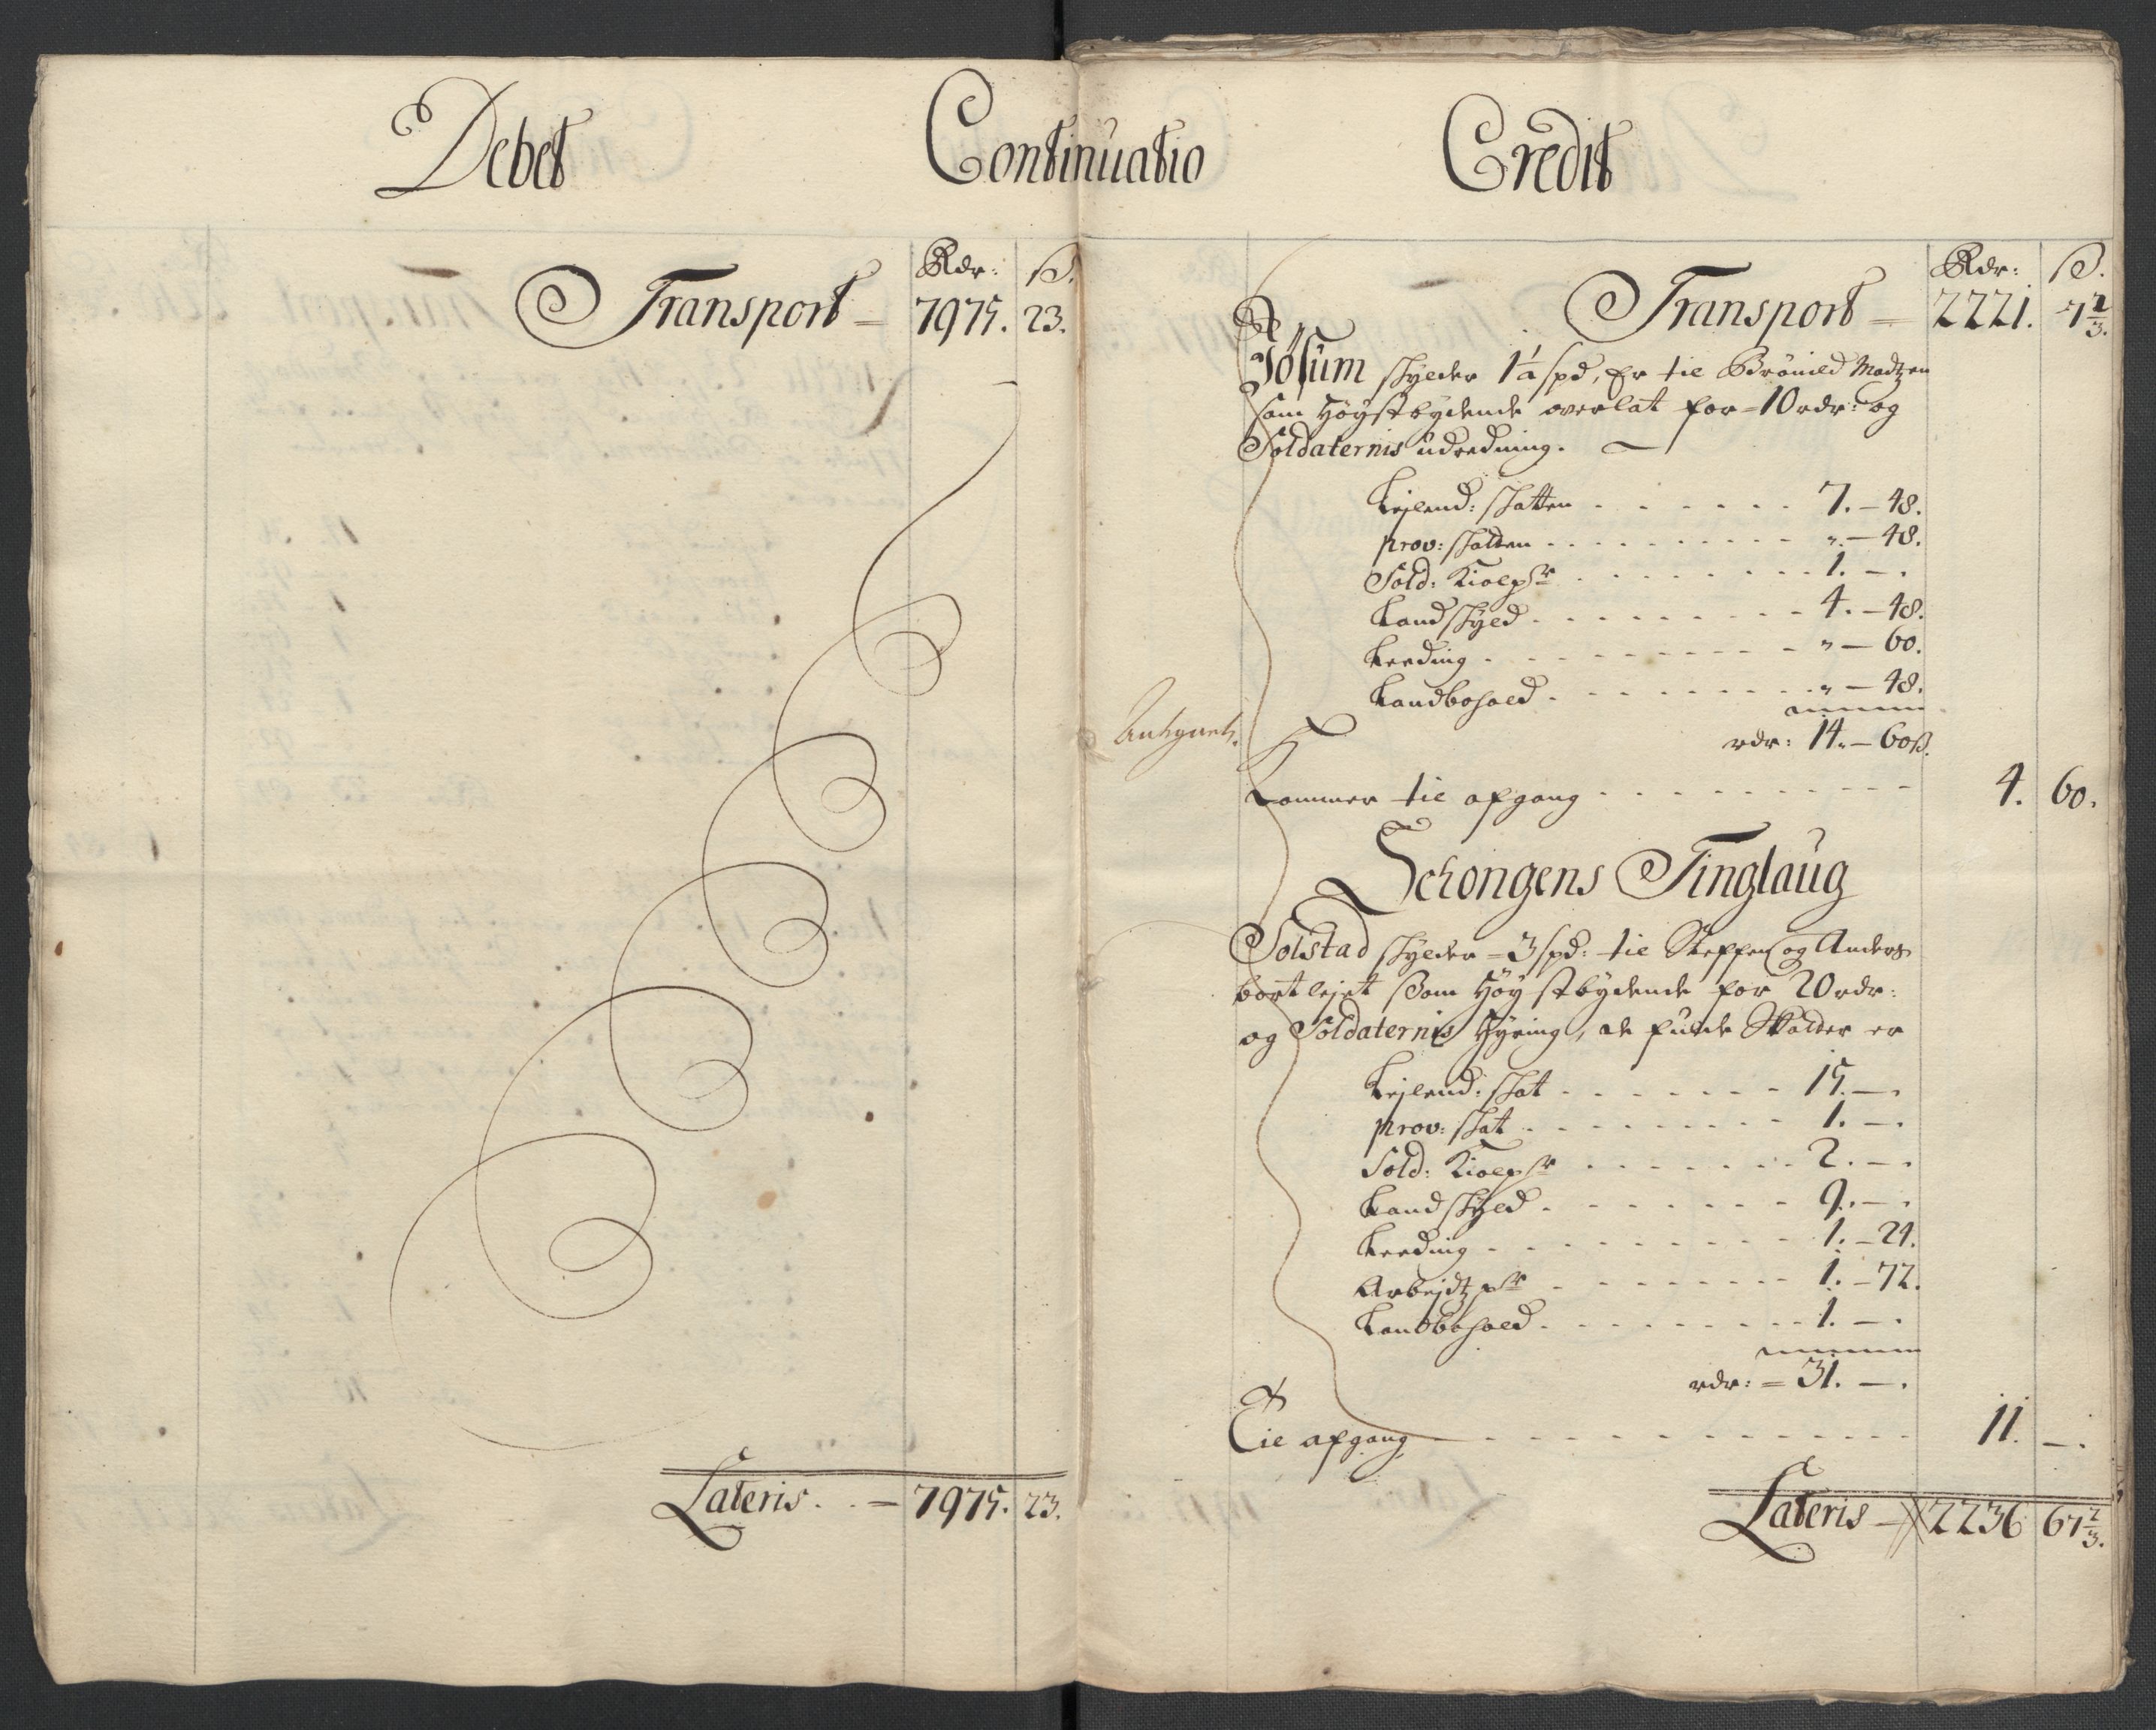 Debet Continuatio Credit
Rdr: ß.
Transport = 7975. 23.
Lateris . . – 7975. 23.
Rdr: ß.
Transport = 2221. 7 2/3.
Jøsum skylder 1½ spd, Er til Brönild Madtzen
som Høystbydende overlat for = 10 rdr: og
Soldaternis udredning. —
Lejlend: skatten . . . . . . 7. – 48.
prov: skatten . . . . . . . . . „ – 48.
Sold: Kiolepr . . . . . . . . 1. – .
Landskyld . . . . . . . . . 4. – 48.
Leeding . . . . . . . . . . „ – 60.
Landbohold . . . . . . . . . „ – 48.
rdr: 14. – 60 ß.
Antegnets.
Kommer til afgang . . . . . . . . . . . 4. 60.
Schongens Tinglaug
Solstad skylder = 3 spd: til Steffen og Anders
bortlejet som Høystbydende for 20 rdr:
og Soldaternis Hyring, de fulde Skatter er
Lejlend: skat . . . . . . . 15. – .
prov: skat . . . . . . . . . 1. – .
Sold: Kiolepr . . . . . . . 2. – .
Landskyld . . . . . . . . 9. – .
Leeding . . . . . . . . . . 1. – 24.
Arbejdtzpr . . . . . . . . . 1. – 72.
Landbohold . . . . . . . . . 1. – .
rdr: = 31. – .
Til afgang . . . . . . . . . . . . . 11. – .
Lateris – 2236 67 2/3.